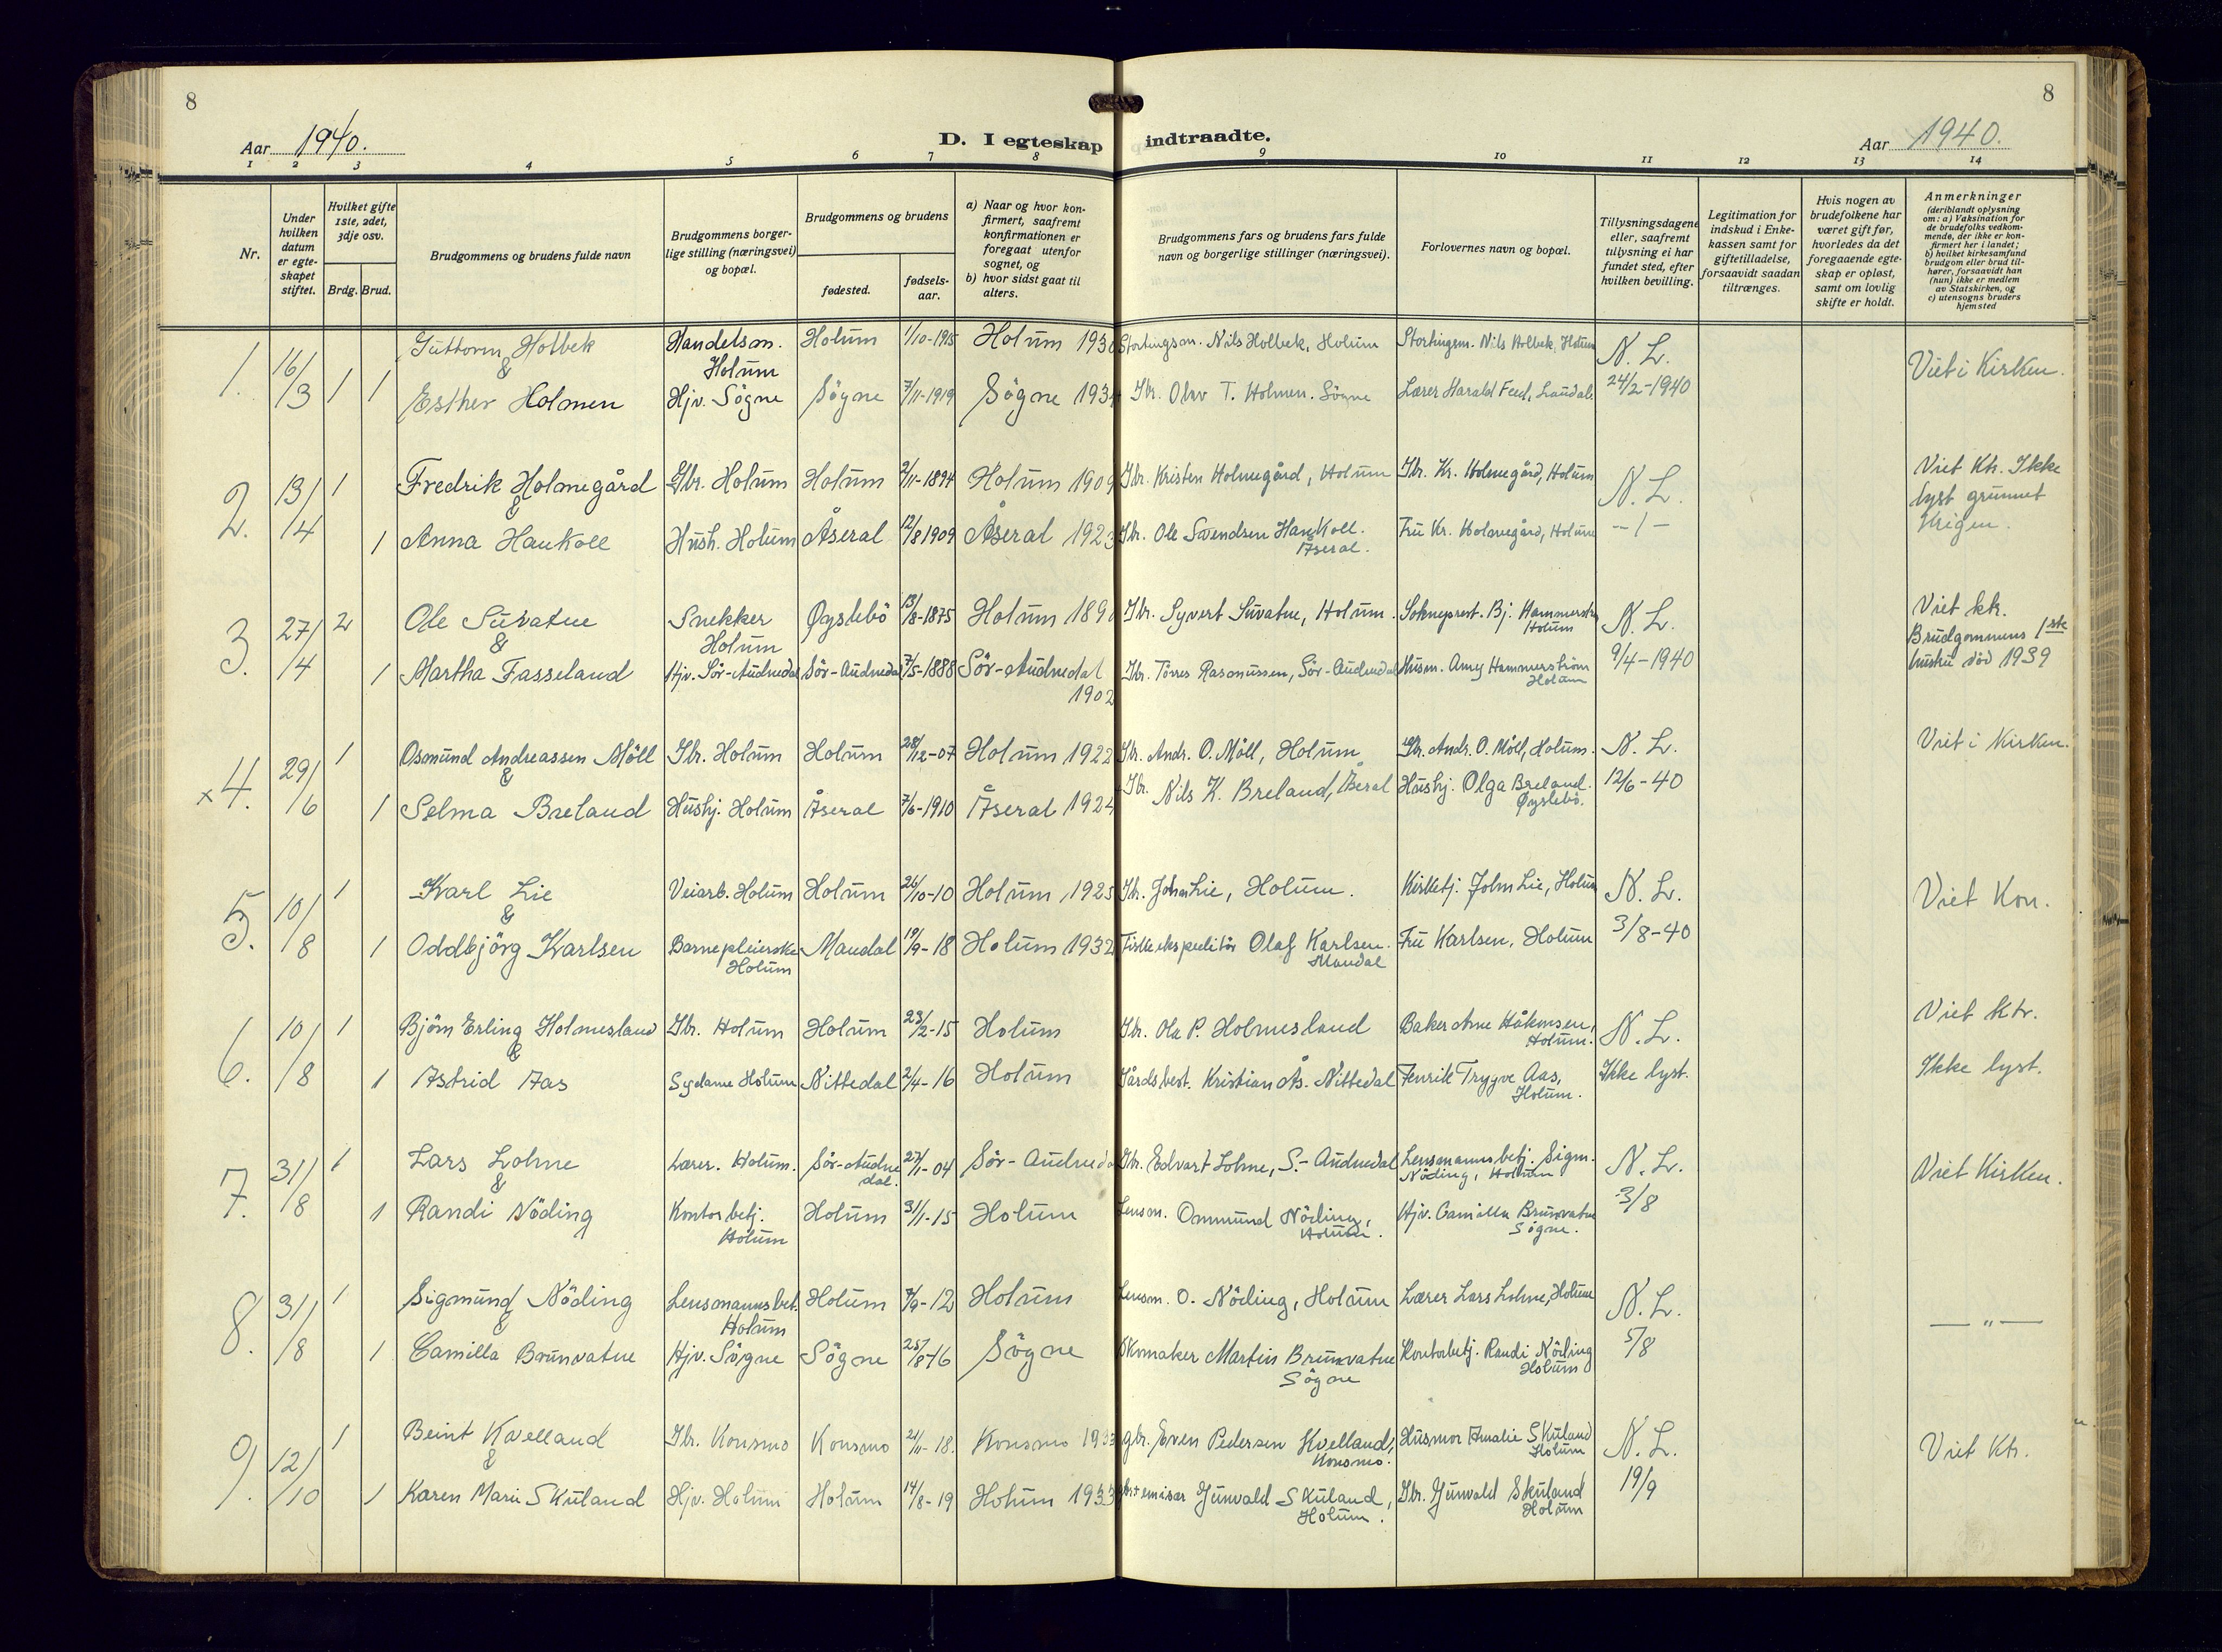 8
8
Aar 1940.
D. I egteskap indtraadte.
Aar 1940.
1 2 3 4 5 6 7 8 9 10 11 12 13 14
Nr.
Under hvilken datum er egteskapet stiftet.
Hvilket gifte 1ste, 2det, 3dje osv.
Brdg. Brud.
Brudgommens og brudens fulde navn
Brudgommens borgerlige stilling (næringsvei) og bopæl.
Brudgommens og brudens
fødested.
fødselsaar.
a) Naar og hvor konfirmert, saafremt konfirmationen er foregaat utenfor sognet, og
b) hvor sidst gaat til alters.
Brudgommens fars og brudens fars fulde navn og borgerlige stillinger (næringsvei).
Forlovernes navn og bopæl.
Tillysningsdagene eller, saafremt tillysning ei har fundet sted, efter hvilken bevilling.
Legitimation for indskud i Enkekassen samt for giftetilladelse, forsaavidt saadan tiltrænges.
Hvis nogen av brudefolkene har været gift før, hvorledes da det foregaaende egteskap er opløst, samt om lovlig skifte er holdt.
Anmerkninger
(deriblandt oplysning om: a) Vaksination for de brudefolks vedkommende, der ikke er konfirmert her i landet; b) hvilket kirkesamfund brudgom eller brud tilhører, forsaavidt han (hun) ikke er medlem av Statskirken, og c) utensogns bruders hjemsted
1. 16/3 1 1 Guttorm Holbek Handelsm. Holum Holum 1/10-1915 Holum 1930 Stortingsm. Nils Holbek, Holum Stortingsm. Nils Holbek, Holum N. L. Viet i Kirken.
&
Esther Holmen Hjv. Søgne Søgne 7/11-1919 Søgne 1934 Gbr. Olav T. Holmen. Søgne Lærer Harald Feed, Laudal 24/2-1940
2. 13/4 1 Fredrik Holmegård Gbr. Holum Holum 2/11-1894 Holum 1909 Gbr. Kristen Holmegård, Holum Gbr. Kr. Holmegård, Holum N. L. Viet Ktr. Ikke lyst grunnet Krigen.
&
1 Anna Haukoll Hush. Holum Åseral 12/8 1909 Åseral 1923 Gbr. Ole Svendsen Haukoll. Åseral. Fru Kr. Holmegård, Holum -1-
3. 27/4 2 Ole Suvatne Snekker Holum Øyslebö 13/8-1875 Holum 1890 Gbr. Syvert Suvatne, Holum. Sokneprest. Bj. Hammerstrø Holum N. L. Viet ktr. Brudgommens 1ste hustru död 1939
&
1 Martha Fasseland Hjv. Sör-Audnedal Sör-Audnedal 7/5-1888 Sör-Audnedal 1902 Gbr. Törres Rasmussen, Sör-Audnedal Husm. Amy Hammerström Holum 9/4-1940
x 4. 29/6 1 Osmund Andreassen Möll Gbr. Holum Holum 28/12-07 Holum 1922 Gbr. Andr. O. Möll, Holum Gbr. Andr. O. Möll, Holum. N. L. Viet i Kirken.
&
1 Selma Breland Hushj. Holum Åseral 7/6-1910 Åseral 1924 Gbr. Nils K. Breland, Åseral Hushj. Olga Breland. Øyslebö. 12/6-40
5. 10/8 1 Karl Lie Veiarb. Holum Holum 26/10-10 Holum 1925 Gbr. John Lie, Holum. Kirketj. John Lie, Holum N. L. Viet Kon.
&
1 Oddbjörg Karlsen Barnepleierske Holum Mandal 19/9-18 Holum 1932 Fiskeekspeditör Olaf Karlsen. Mandal Fru Karlsen, Holum 3/8-40
6. 10/8 1 Björn Erling Holmesland Gbr. Holum Holum 23/2-15 Holum Gbr. Ole P. Holmesland Baker Arne Håkonsen, Holum. N. L. Viet Ktr.
&
1 Astrid Aas Sydame Holum Nittedal 2/4-16 Holum Gårdsbest. Kristian Ås. Nittedal Fenrik Trygve Aas, Holum. Ikke lyst. Ikke lyst.
7. 31/8 1 Lars Lohne Lærer. Holum. Sör-Audnedal. 27/1-04 Sör-Audneda Gbr. Edvart Lohne, S.-Audnedal Lensmannsbetj. Sigm. Nöding, Holum N. L. Viet Kirken.
&
1 Randi Nöding Kontorbetj. Holum Holum 31/1-15 Holum Lensm. Ommund Nöding, Holum. Hjv. Camilla Brunvatne Søgne. 3/8
8. 31/8 1 Sigmund Nöding Lensmannsbet. Holum Holum 7/9-12 Holum Lensm. O. Nöding, Holum Lærer Lars Lohne, Holum N. L. — " —
&
1 Camilla Brunvatne Hjv. Søgne Søgne 25/8-16 Søgne Skomaker Martin Brunvatne Søgne Kontorbetj. Randi Nöding Holum 5/8
9. 12/10 1 Beint Kvelland Gbr. Konsmo Konsmo 21/11-18. Konsmo 1933 gbr. Even Pedersen Kvelland, Konsmo. Husmor Amalie Skuland Holum N. L. Viet Ktr.
&
1 Karen Marie Skuland Hjv. Holum Holum 14/8-19 Holum 1933 emisær Gunvald Skuland, Holum. Gbr. Gunvald Skuland Holum 19/9